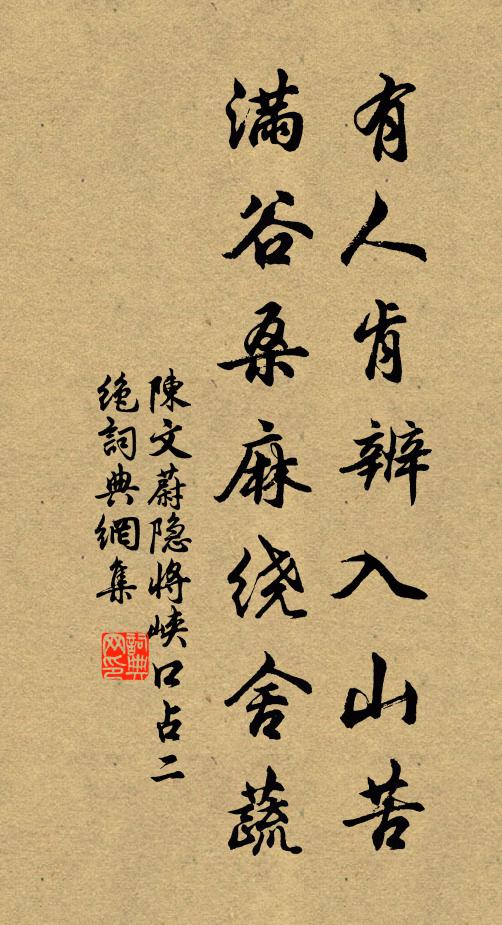 有人肯辨入山苦
满谷桑麻绕舍蔬
陳文蔚隐将峡口占二
绝詞典網集
詞典网印